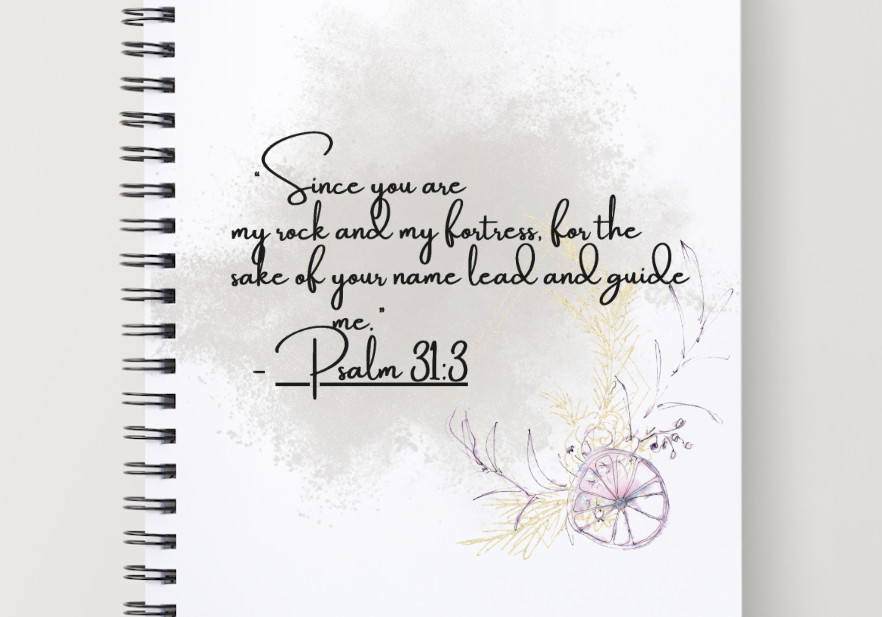 "Since you are
my rock and my fortress, for the
sake of your name lead and guide
me."
- Psalm 31:3